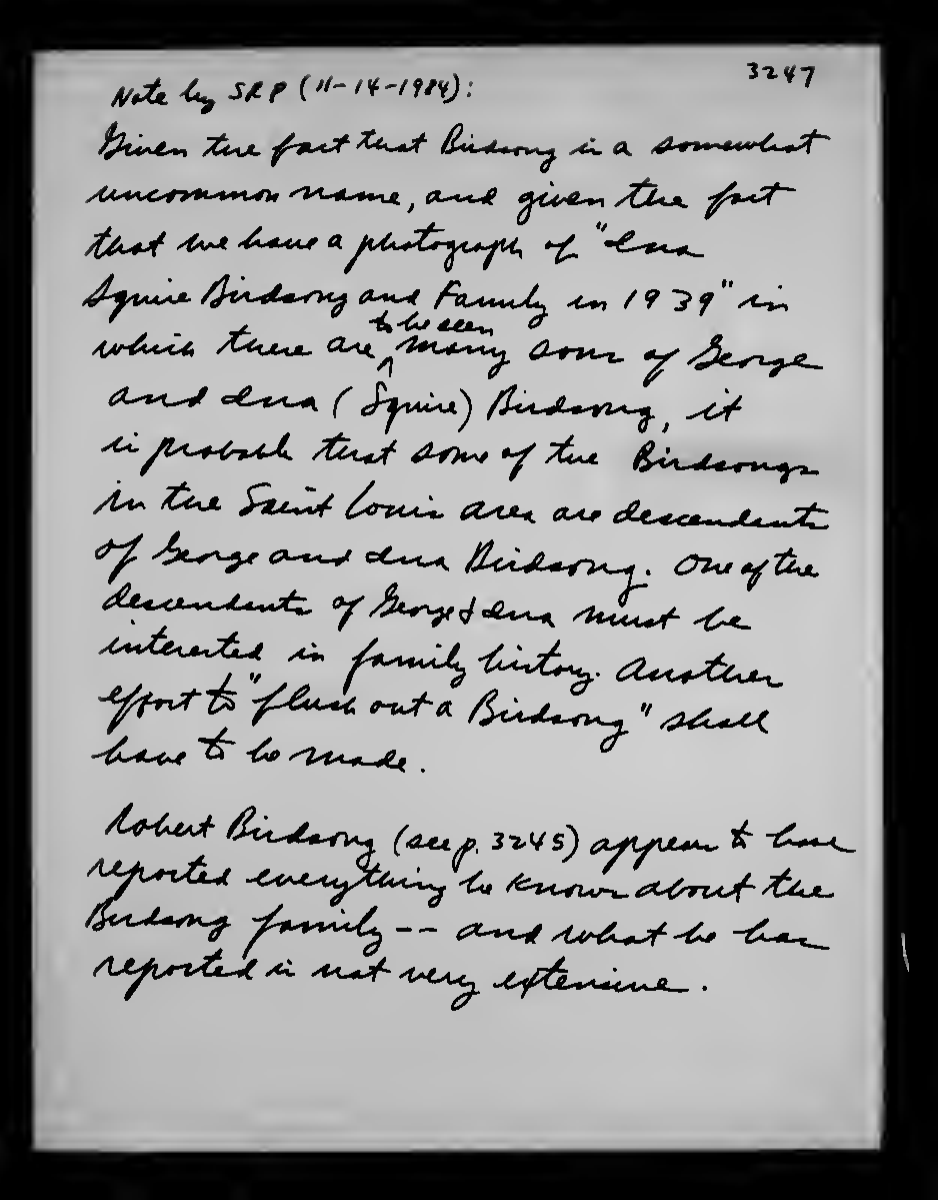 3247
Note by SRP (11-14-1984):
Given the fact that Birdsong is a somewhat
uncommon name, and given the fact
that we have a photograph of "Ina
Squire Birdsong and Family in 1939" in
to be seen
which there are ^ many sons of George
and Ina (Squire) Birdsong, it
is probable that some of the Birdsongs
in the Saint Louis area are descendants
of George and Ina Birdsong. One of the
descendants of George & Ina must be
interested in family history. Another
effort to "flush out a Birdsong" shall
have to be made.
Robert Birdsong (see p. 3245) appears to have
reported everything he knows about the
Birdsong family -- and what he has
reported is not very extensive.